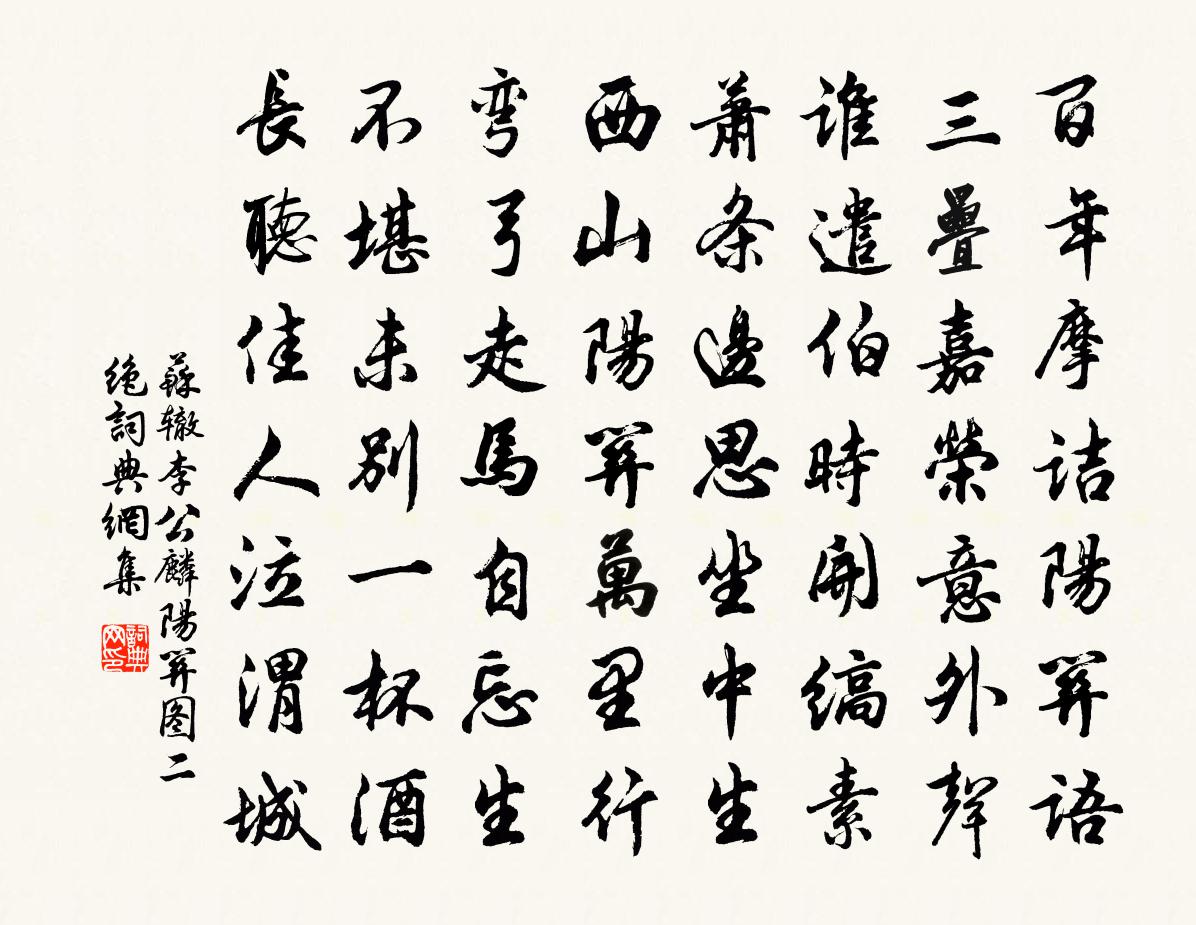 百年摩诘陽関語
三疊嘉榮意外聲
誰遣伯時開縞素
蕭条邊思坐中生
西山陽関萬里行
弯弓走馬自忘生
不堪未别一杯酒
長聽佳人泣渭城
蘇辙李公麟陽関图二
绝詞典網集
詞典网印